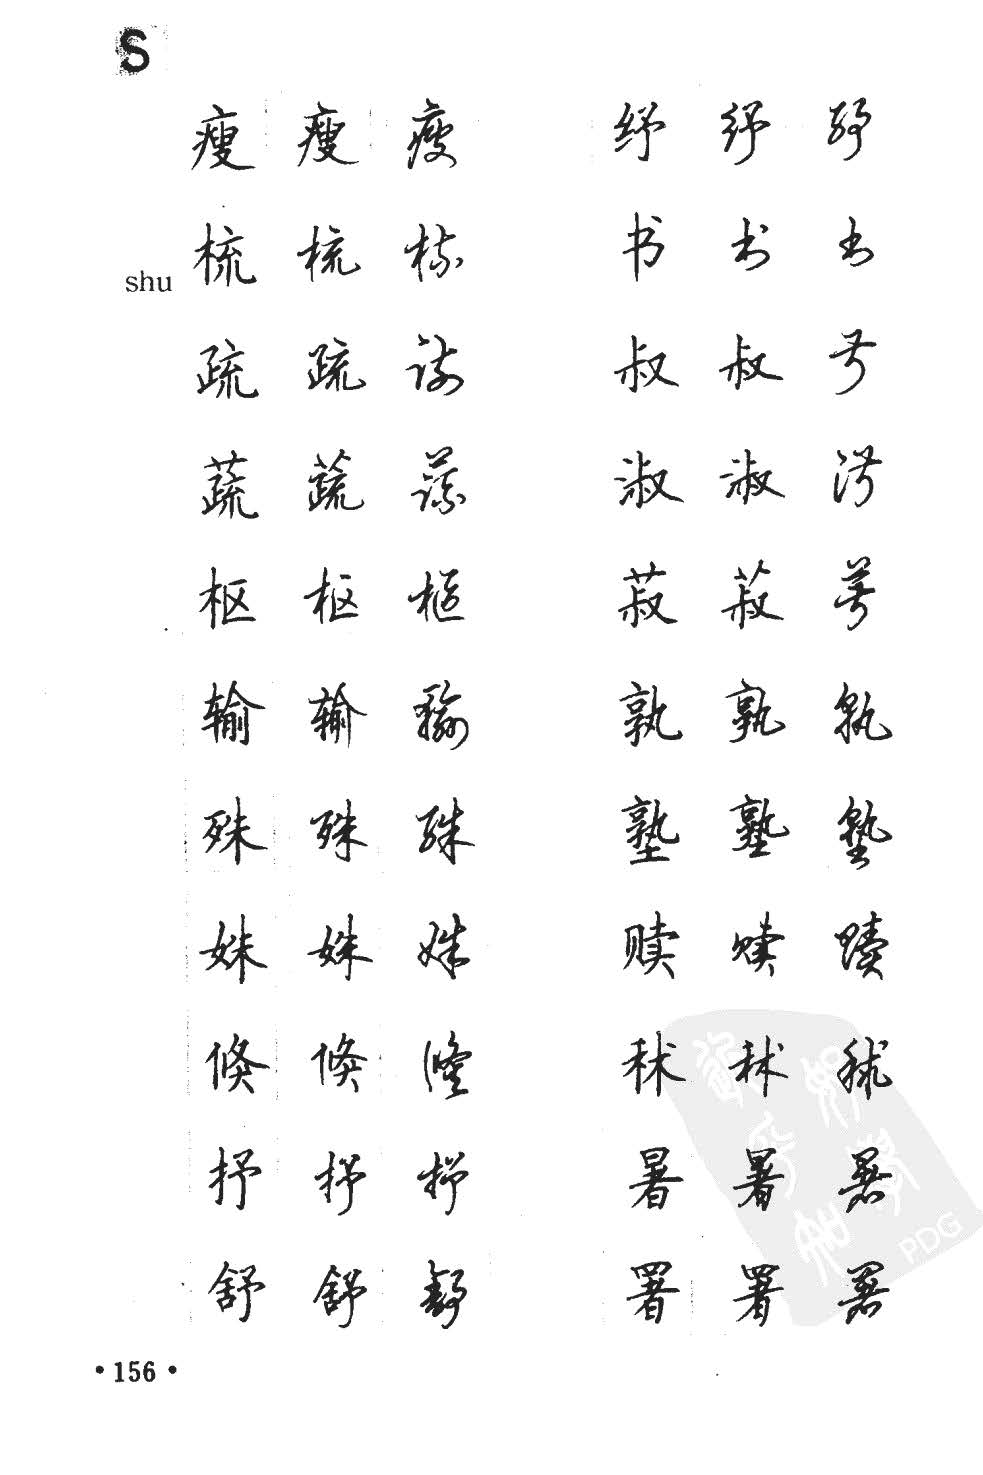 S
瘦 瘦 瘦
shu
梳 梳 梳
疏 疏 疏
蔬 蔬 蔬
枢 枢 枢
输 输 输
殊 殊 殊
姝 姝 姝
倏 倏 倏
抒 抒 抒
舒 舒 舒
纾 纾 纾
书 书 书
叔 叔 叔
淑 淑 淑
菽 菽 菽
孰 孰 孰
塾 塾 塾
赎 赎 赎
秫 秫 秫
暑 暑 暑
署 署 署
PDG
·156·